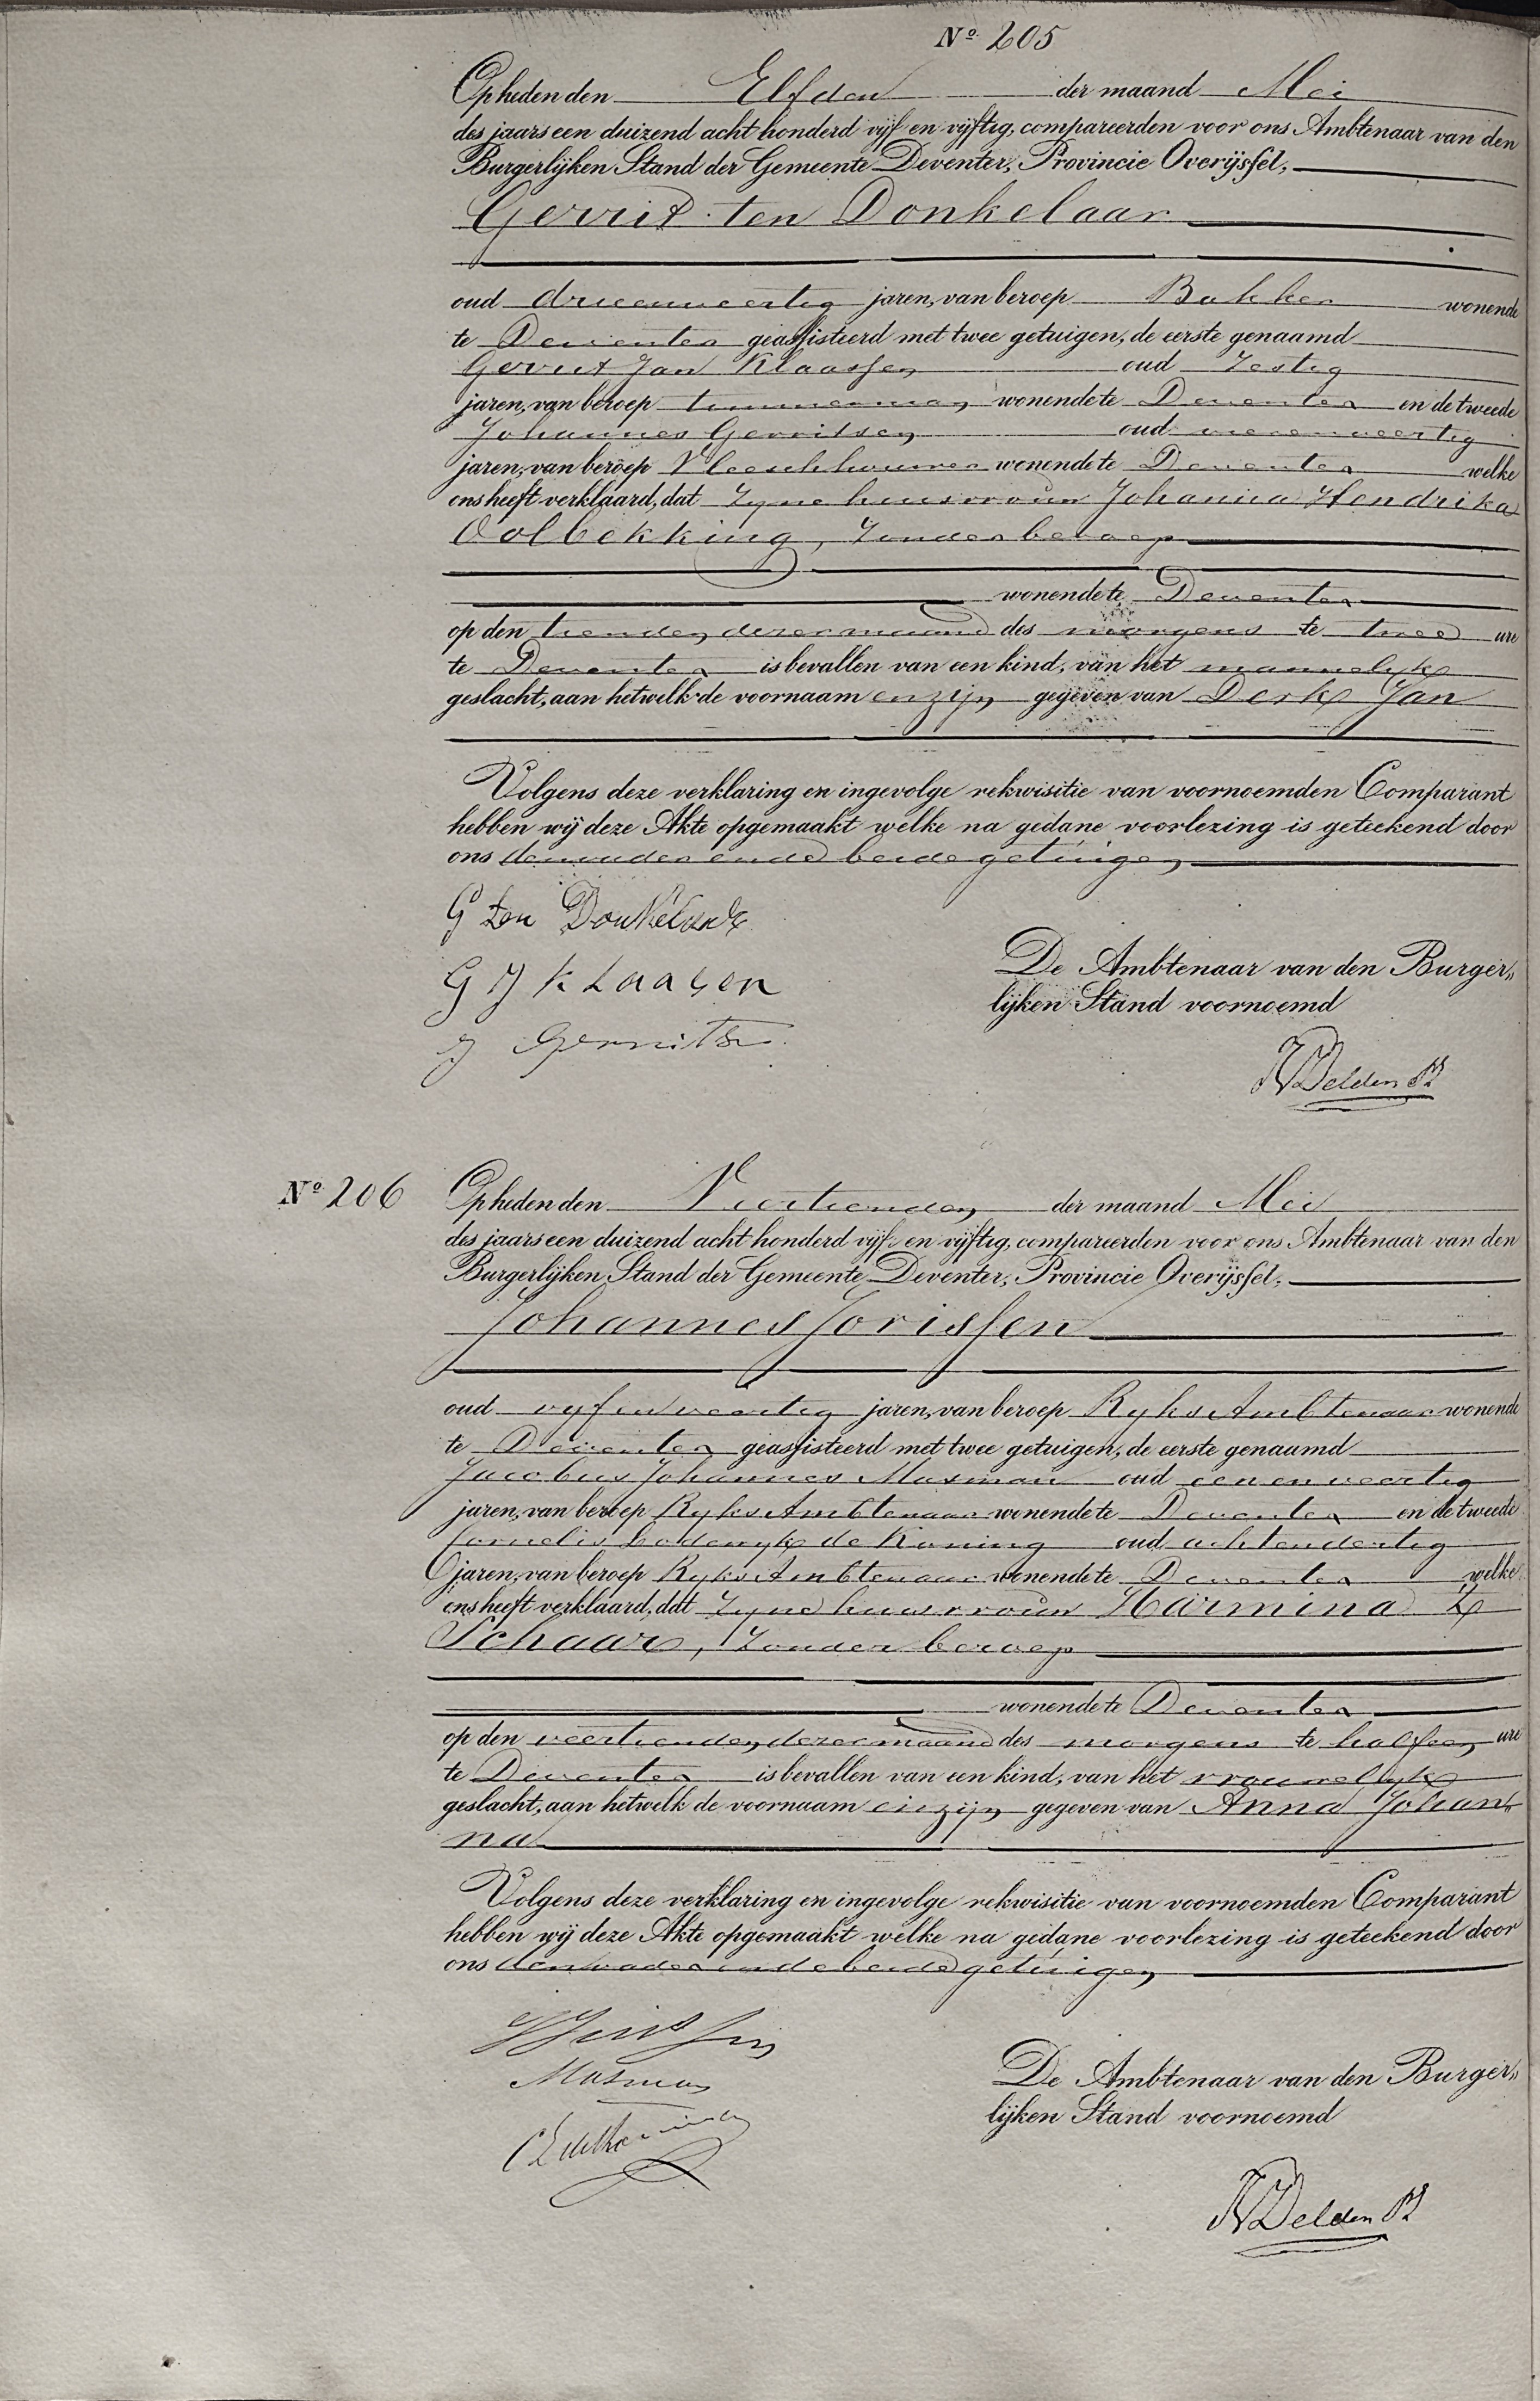 Nº 205
Op heden den Elfden der maand Mei
des jaars een duizend acht honderd vijf en vijftig, compareerden voor ons Ambtenaar van den
Burgerlijken Stand der Gemeente Deventer, Provincie Overijssel,
Gerrit ten Donkelaar
oud drieenveertig jaren, van beroep Bakker wonende
te Deventer geassisteerd met twee getuigen, de eerste genaamd
Gerrit Jan Klaassen oud Zestig
jaren, van beroep timmerman wonende te Deventer en de tweede
Johannes Gerritsen oud
jaren, van beroep Vleeschhouwer wonende te Deventer welke
ons heeft verklaard, dat Zyne huisvrouw Johanna Hendrika
Oolbekking, Zonder beroep
wonende te Deventer
op den tienden dezer maand des morgens te twee ure
te Deventer is bevallen van een kind, van het mannelyk
geslacht, aan hetwelk de voornaam en zijn gegeven van Derk Jan
Volgens deze verklaring en ingevolge rekwisitie van voornoemden Comparant
hebben wij deze Akte opgemaakt welke na gedane voorlezing is geteekend door
ons den vader ende beide getuigen
G ten Donkelaar
G J Klaasen
J Gerritsen
De Ambtenaar van den Burger„
lijken Stand voornoemd
Delden
Nº 206 Op heden den Veertienden der maand Mei
des jaars een duizend acht honderd vijf en vijftig, compareerden voor ons Ambtenaar van den
Burgerlijken Stand der Gemeente Deventer, Provincie Overijssel,
Johannes Jorissen
oud vyfenveertig jaren, van beroep Ryks Ambtenaar wonende
te Deventer geassisteerd met twee getuigen, de eerste genaamd
Jacobus Johannes Masman oud eenenveertig
jaren, van beroep Ryks Ambtenaar wonende te Deventer en de tweede
Cornelis Lodewyk de Koning oud achtendertig
jaren, van beroep Ryks Ambtenaar wonende te Deventer welke
ons heeft verklaard, dat Zyne huisvrouw Harmina
Schaars, Zonder beroep
wonende te Deventer
op den veertienden dezer maand des morgens te half een ure
te Deventer is bevallen van een kind, van het vrouwelyk
geslacht, aan hetwelk de voornaam en zijn gegeven van Anna Johan„
na
Volgens deze verklaring en ingevolge rekwisitie van voornoemden Comparant
hebben wij deze Akte opgemaakt welke na gedane voorlezing is geteekend door
ons den vader ende beide getuigen
Masman
De Ambtenaar van den Burger„
lijken Stand voornoemd
Delden